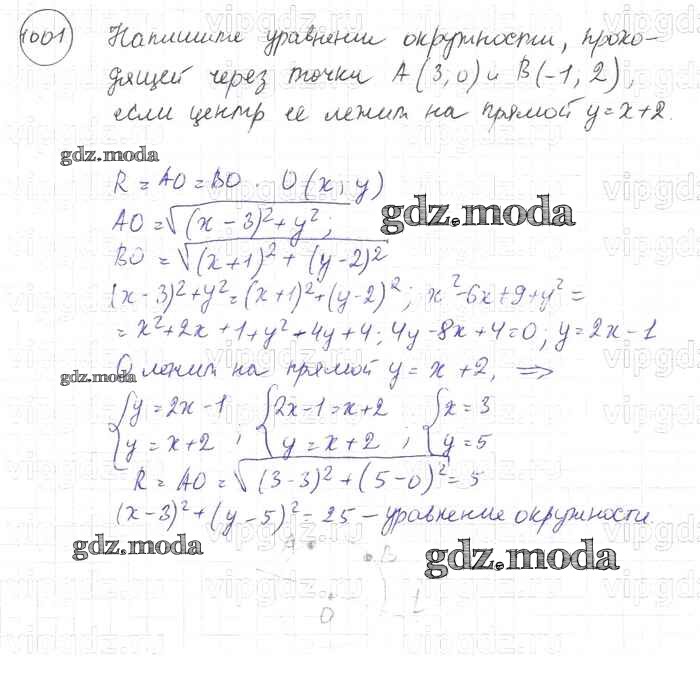 1001 Напишите уравнение окружности, прохо-
дящей через точки A(3;0) и B(-1;2),
если центр ее лежит на прямой y=x+2.
gdz.moda
R = AO = BO. O(x; y)
gdz.moda
AO = √(x-3)²+y²;
BO = √(x+1)²+(y-2)²
(x-3)²+y²=(x+1)²+(y-2)²; x²-6x+9+y²=
= x²+2x+1+y²+4y+4; 4y-8x+4=0; y=2x-1
O лежит на прямой y=x+2, ⇒
gdz.moda
{y=2x-1 ; {2x-1=x+2 ; {x=3
{y=x+2 {y=x+2 {y=5
R = AO = √(3-3)²+(5-0)² = 5
(x-3)²+(y-5)²=25 – уравнение окружности.
gdz.moda
gdz.moda
B
O